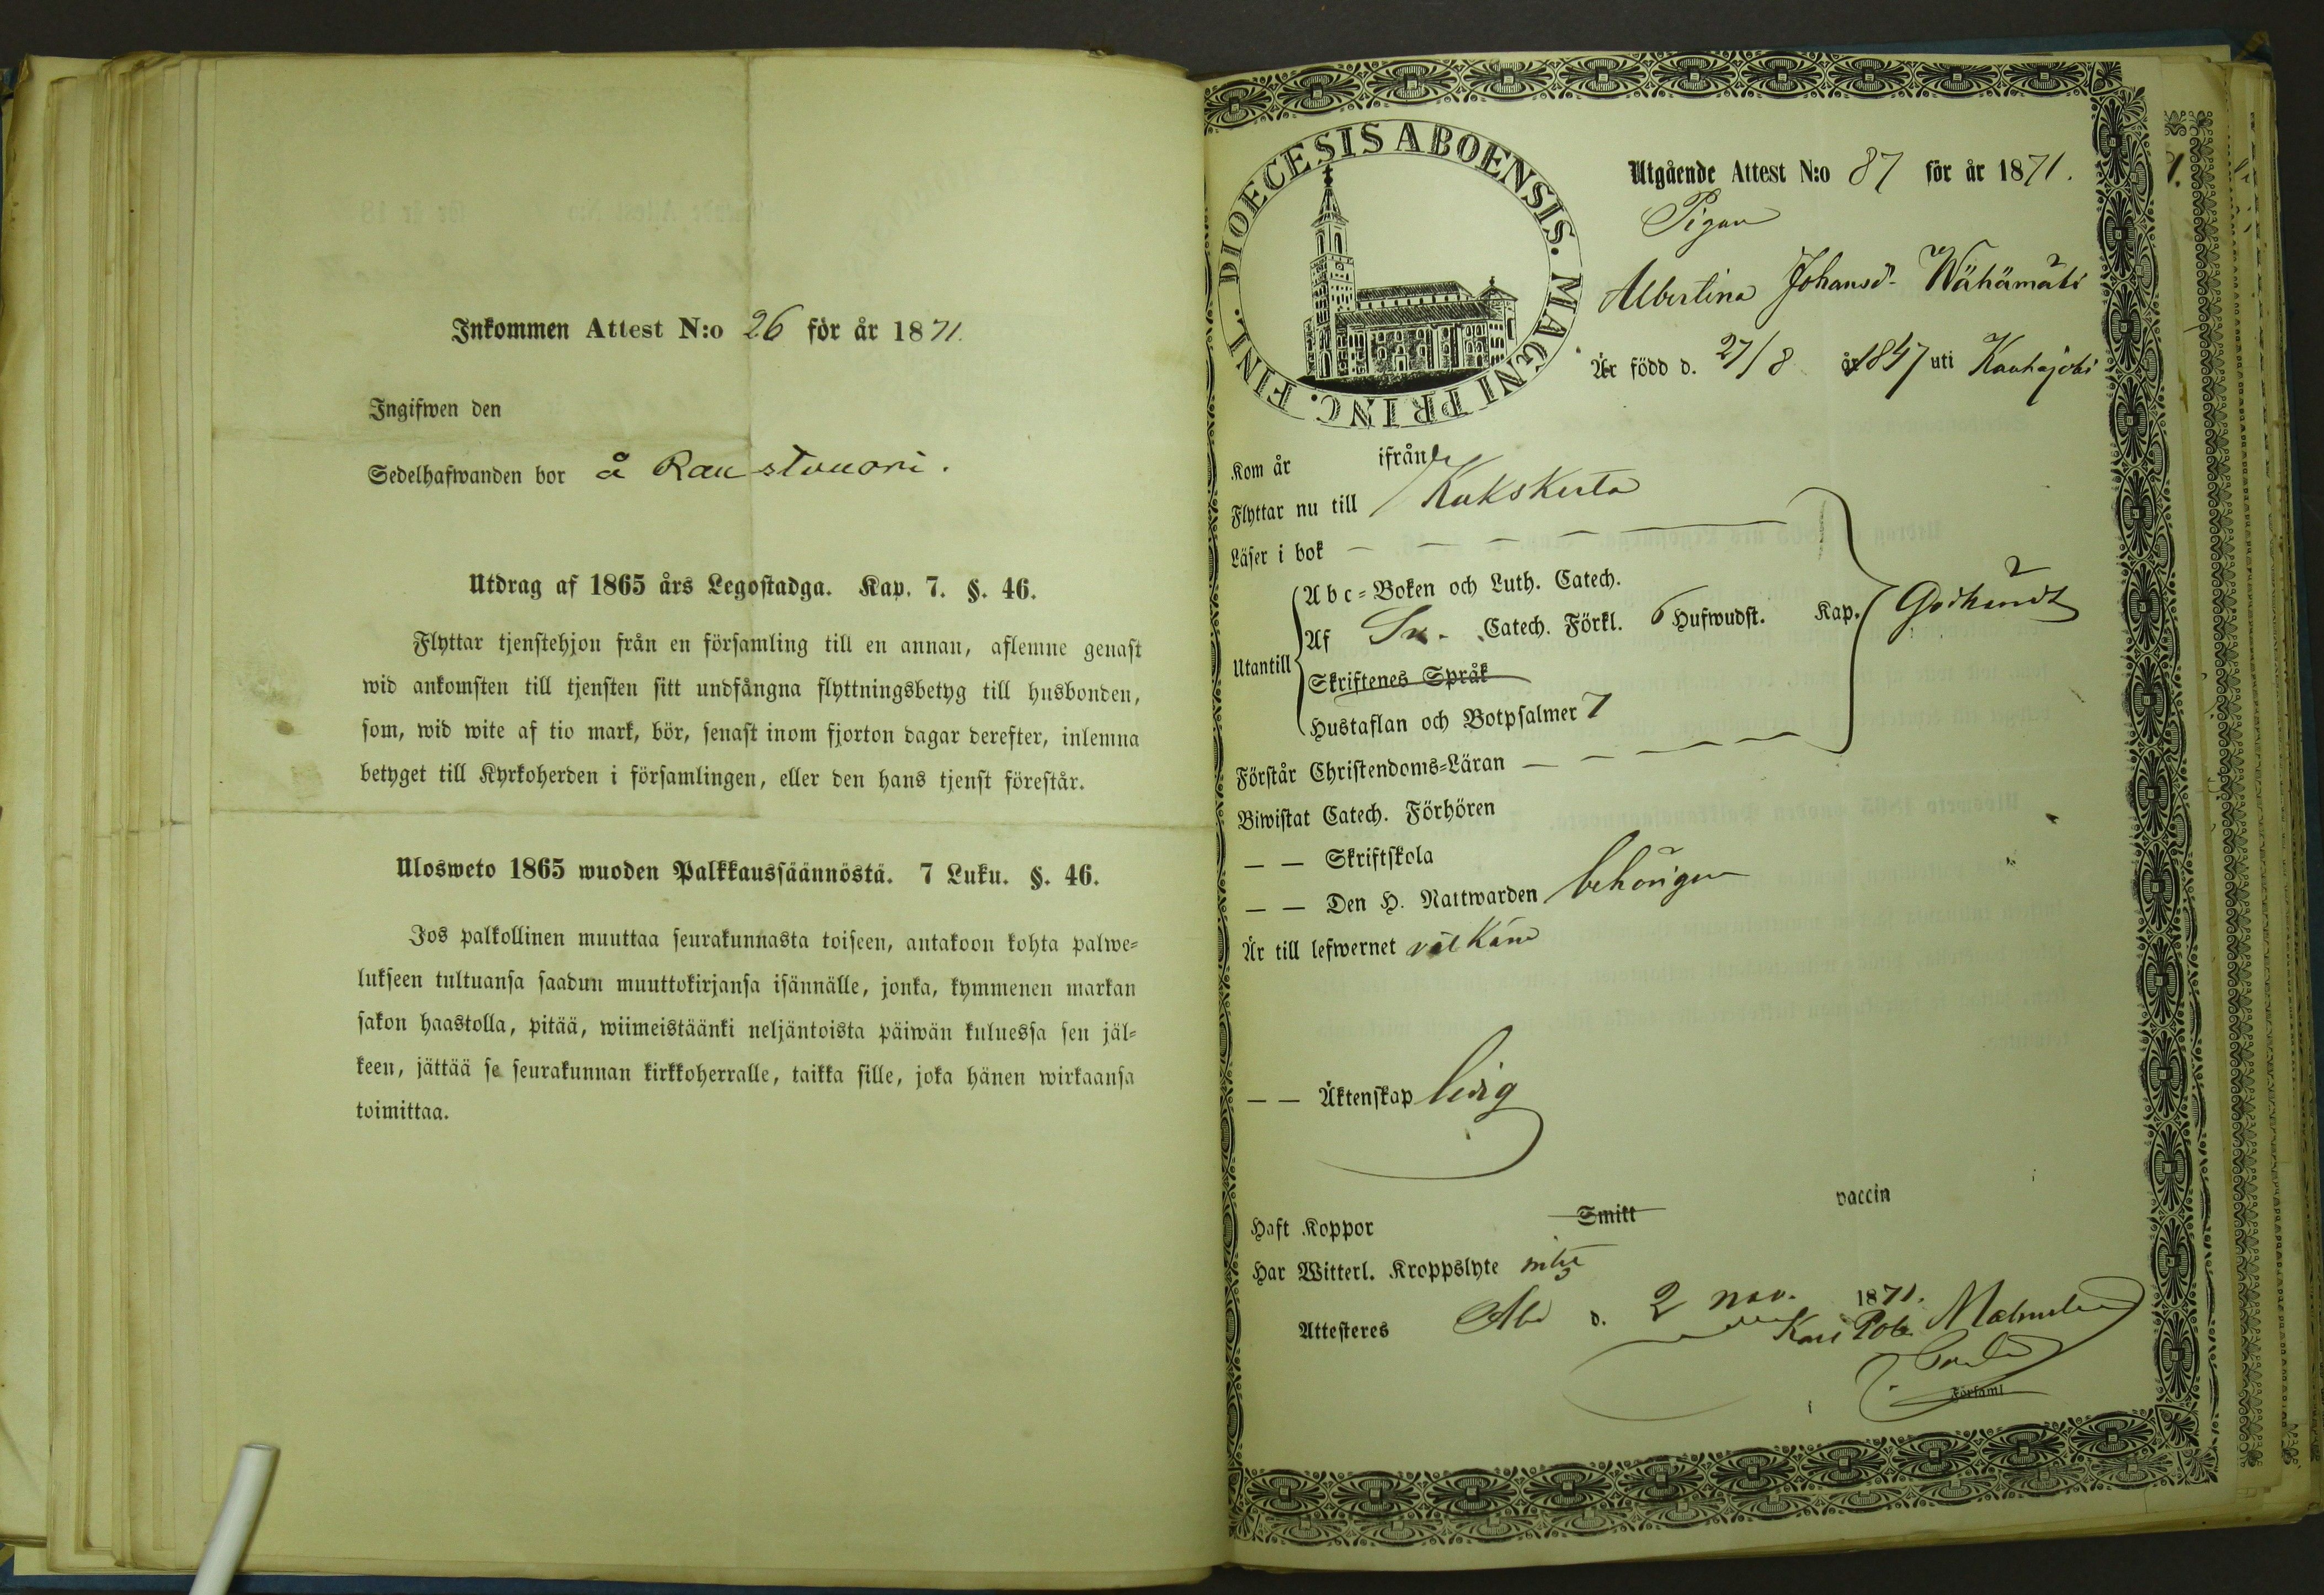 Inkommen Attest N:o 26 för år 1871.
Ingifwen den
Sedelhafwanden bor å Raustvuori.
Utdrag af 1865 års Legostadga. Kap. 7. §. 46.
Flyttar tjenstehjon från en församling till en annan, aflemne genast
wid ankomsten till tjensten sitt undfångna flyttningsbetyg till husbonden,
som, wid wite af tio mark, bör, senast inom fjorton dagar derefter, inlemna
betyget till Kyrkoherden i församlingen, eller den hans tjenst förestår.
Ulosweto 1865 wuoden Palkkaussäännöstä. 7 Luku. §. 46.
Jos palkollinen muuttaa seurakunnasta toiseen, antakoon kohta palwe=
lukseen tultuansa saadun muuttokirjansa isännälle, jonka, kymmenen markan
sakon haastolla, pitää, wiimeistäänki neljäntoista päiwän kuluessa sen jäl=
keen, jättää se seurakunnan kirkkoherralle, taikka sille, joka hänen wirkaansa
toimittaa.
DIOECESIS ABOENSIS. MAGNI PRINC. FINL.
Utgående Attest N:o 87 för år 1871.
Pigan
Albertina Johansd. Wähämäki
Är född d. 27/8 år 1847 uti Kauhajoki
Kom år ifrån
Flyttar nu till Kakskerta
Läser i bok
Abc=Boken och Luth. Catech.
Utantill
Af Sv. Catech. Förkl. 6 Hufwudst. Kap. Godkändt
Skriftenes Språk
Hustaflan och Botpsalmer 7
Förstår Christendoms=Läran
Biwistat Catech. Förhören
— — Skriftskola
— — Den H. Nattwarden behörigen
Är till lefwernet väl känd
— — Äktenskap ledig
Haft Koppor Smitt vaccin
Har Witterl. Kroppslyte intet
Attesteres Åbo d. 2 nov. 1871.
Församl